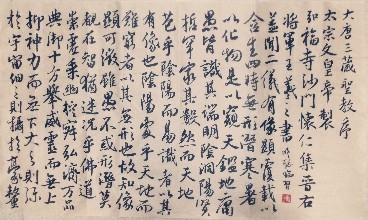 大唐三藏聖教序
太宗文皇帝製
弘福寺沙門懷仁集晉右
將軍王羲之書
蓋聞二儀有像顯覆載以
含生四時無形潛寒暑
以化物是以窺天鑑地庸
愚皆識其端明陰洞陽賢
哲罕窮其數然而天地
苞乎陰陽而易識者以其
有像也陰陽處乎天地而
難窮者以其無形也故知像
顯可徵雖愚不惑形潛莫
覩在智猶迷況乎佛道
崇虛乘幽控寂弘濟万品
典御十方舉威靈而無上
抑神力而無下大之則弥
於宇宙細之則攝於豪釐